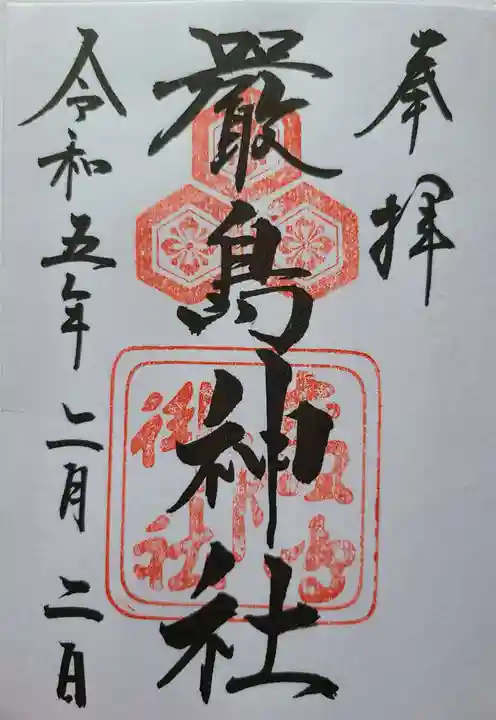 奉拝
嚴島神社
令和五年二月二日